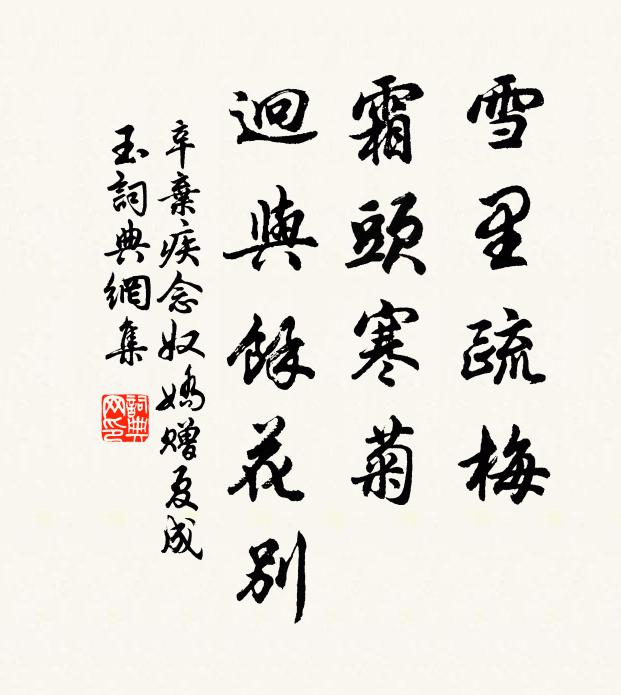 雪里疏梅
霜頭寒菊
迥與餘花別
辛棄疾念奴嬌贈夏成
玉詞典網集
詞典
网印